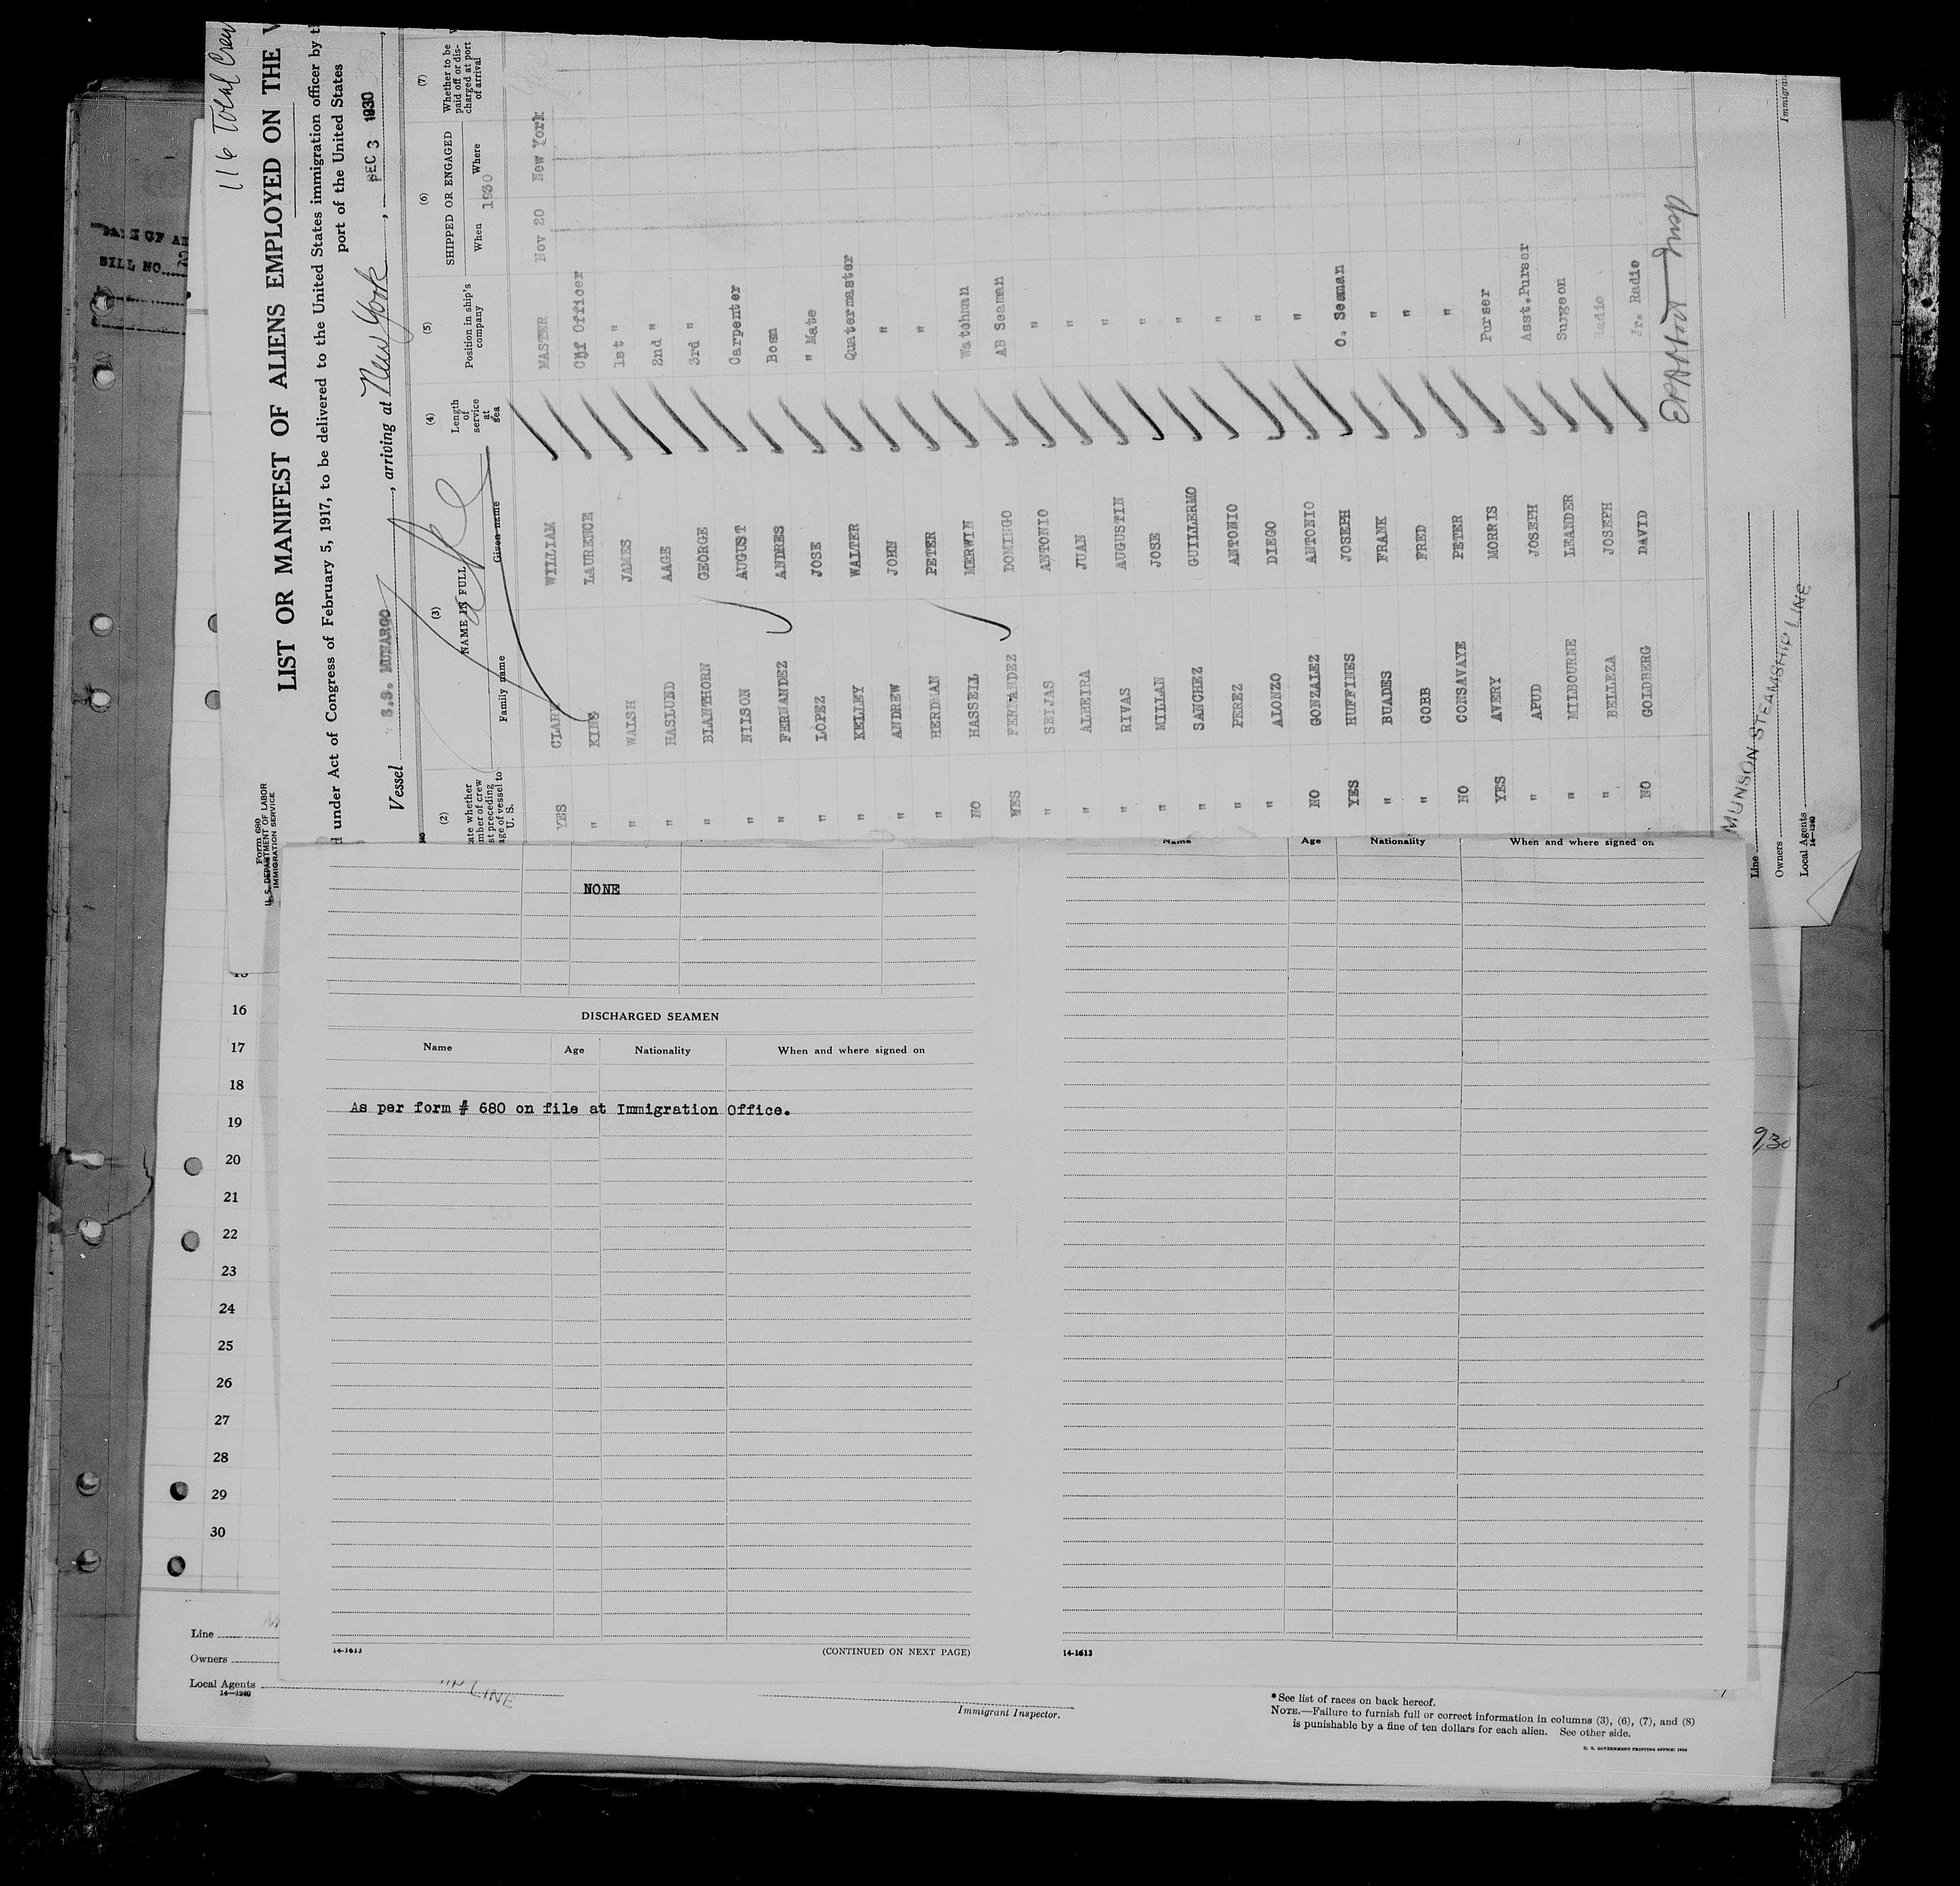 116 Total Crew
Form 680
U. S. DEPARTMENT OF LABOR
IMMIGRATION SERVICE
LIST OR MANIFEST OF ALIENS EMPLOYED ON THE
under Act of Congress of February 5, 1917, to be delivered to the United States immigration officer by
port of the United States
Vessel S.S. MUNARGO, arriving at New York, DEC 3 1930,
(2) (3) (4) (5) (6) (7)
whether
of crew
preceding
of vessel to
U. S.
NAME IN FULL
Family name Given name
Length of service at sea
Position in ship's company
SHIPPED OR ENGAGED
When Where
1930
Whether to be paid off or discharged at port of arrival
YES CLARK WILLIAM MASTER Nov 20 New York
" KING LAURENCE Chf Officer
" WALSH JAMES 1st "
" HASLUND AAGE 2nd "
" BLANTHORN GEORGE 3rd "
" NILSON AUGUST Carpenter
" FERNANDEZ ANDRES Bosn
" LOPEZ JOSE " Mate
" KELLEY WALTER Quatermaster
" ANDREW JOHN "
" HERDMAN PETER "
NO HASSEIL MERWIN Watchman
YES FERNANDEZ DOMINGO AB Seaman
" SEIJAS ANTONIO "
" ALBEIRA JUAN "
" RIVAS AUGUSTIN "
" MILLAN JOSE "
" SANCHEZ GUILLERMO "
" PEREZ ANTONIO "
" ALONZO DIEGO "
NO GONZALEZ ANTONIO "
YES HUFFINES JOSEPH O. Seaman
" BUADES FRANK "
" COBB FRED "
NO CONSAVAYE PETER "
YES AVERY MORRIS Purser
" APUD JOSEPH Asst.Purser
" MILBOURNE LEANDER Surgeon
" BELLEZA JOSEPH Radio
NO GOLDBERG DAVID Jr. Radio
Line MUNSON STEAMSHIP LINE
Owners
Local Agents
14-1240
Immigran
BILL NO.
Name Age Nationality When and where signed on
NONE
DISCHARGED SEAMEN
Name Age Nationality When and where signed on
As per form # 680 on file at Immigration Office.
14-1613 (CONTINUED ON NEXT PAGE) 14-1613
16
17
18
19
20
21
22
23
24
25
26
27
28
29
30
930
Line
Owners
Local Agents
14-1240
LINE
Immigrant Inspector.
* See list of races on back hereof.
NOTE.—Failure to furnish full or correct information in columns (3), (6), (7), and (8)
is punishable by a fine of ten dollars for each alien. See other side.
U. S. GOVERNMENT PRINTING OFFICE: 1930